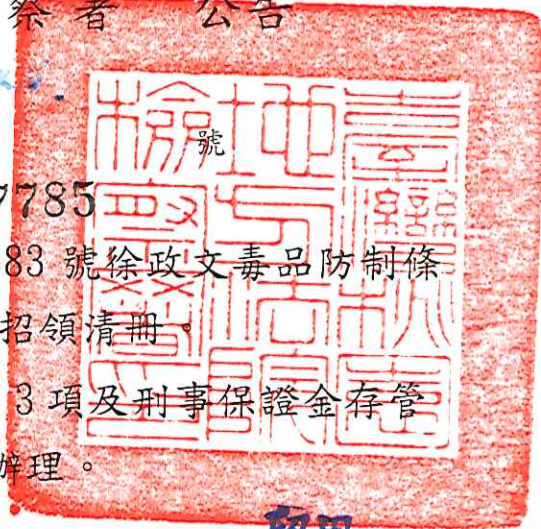 察署 公告
號
7785
83 號徐政文毒品防制條
招領清冊。
3 項及刑事保證金存管
辦理。
臺灣桃園
地方法院
檢察署印